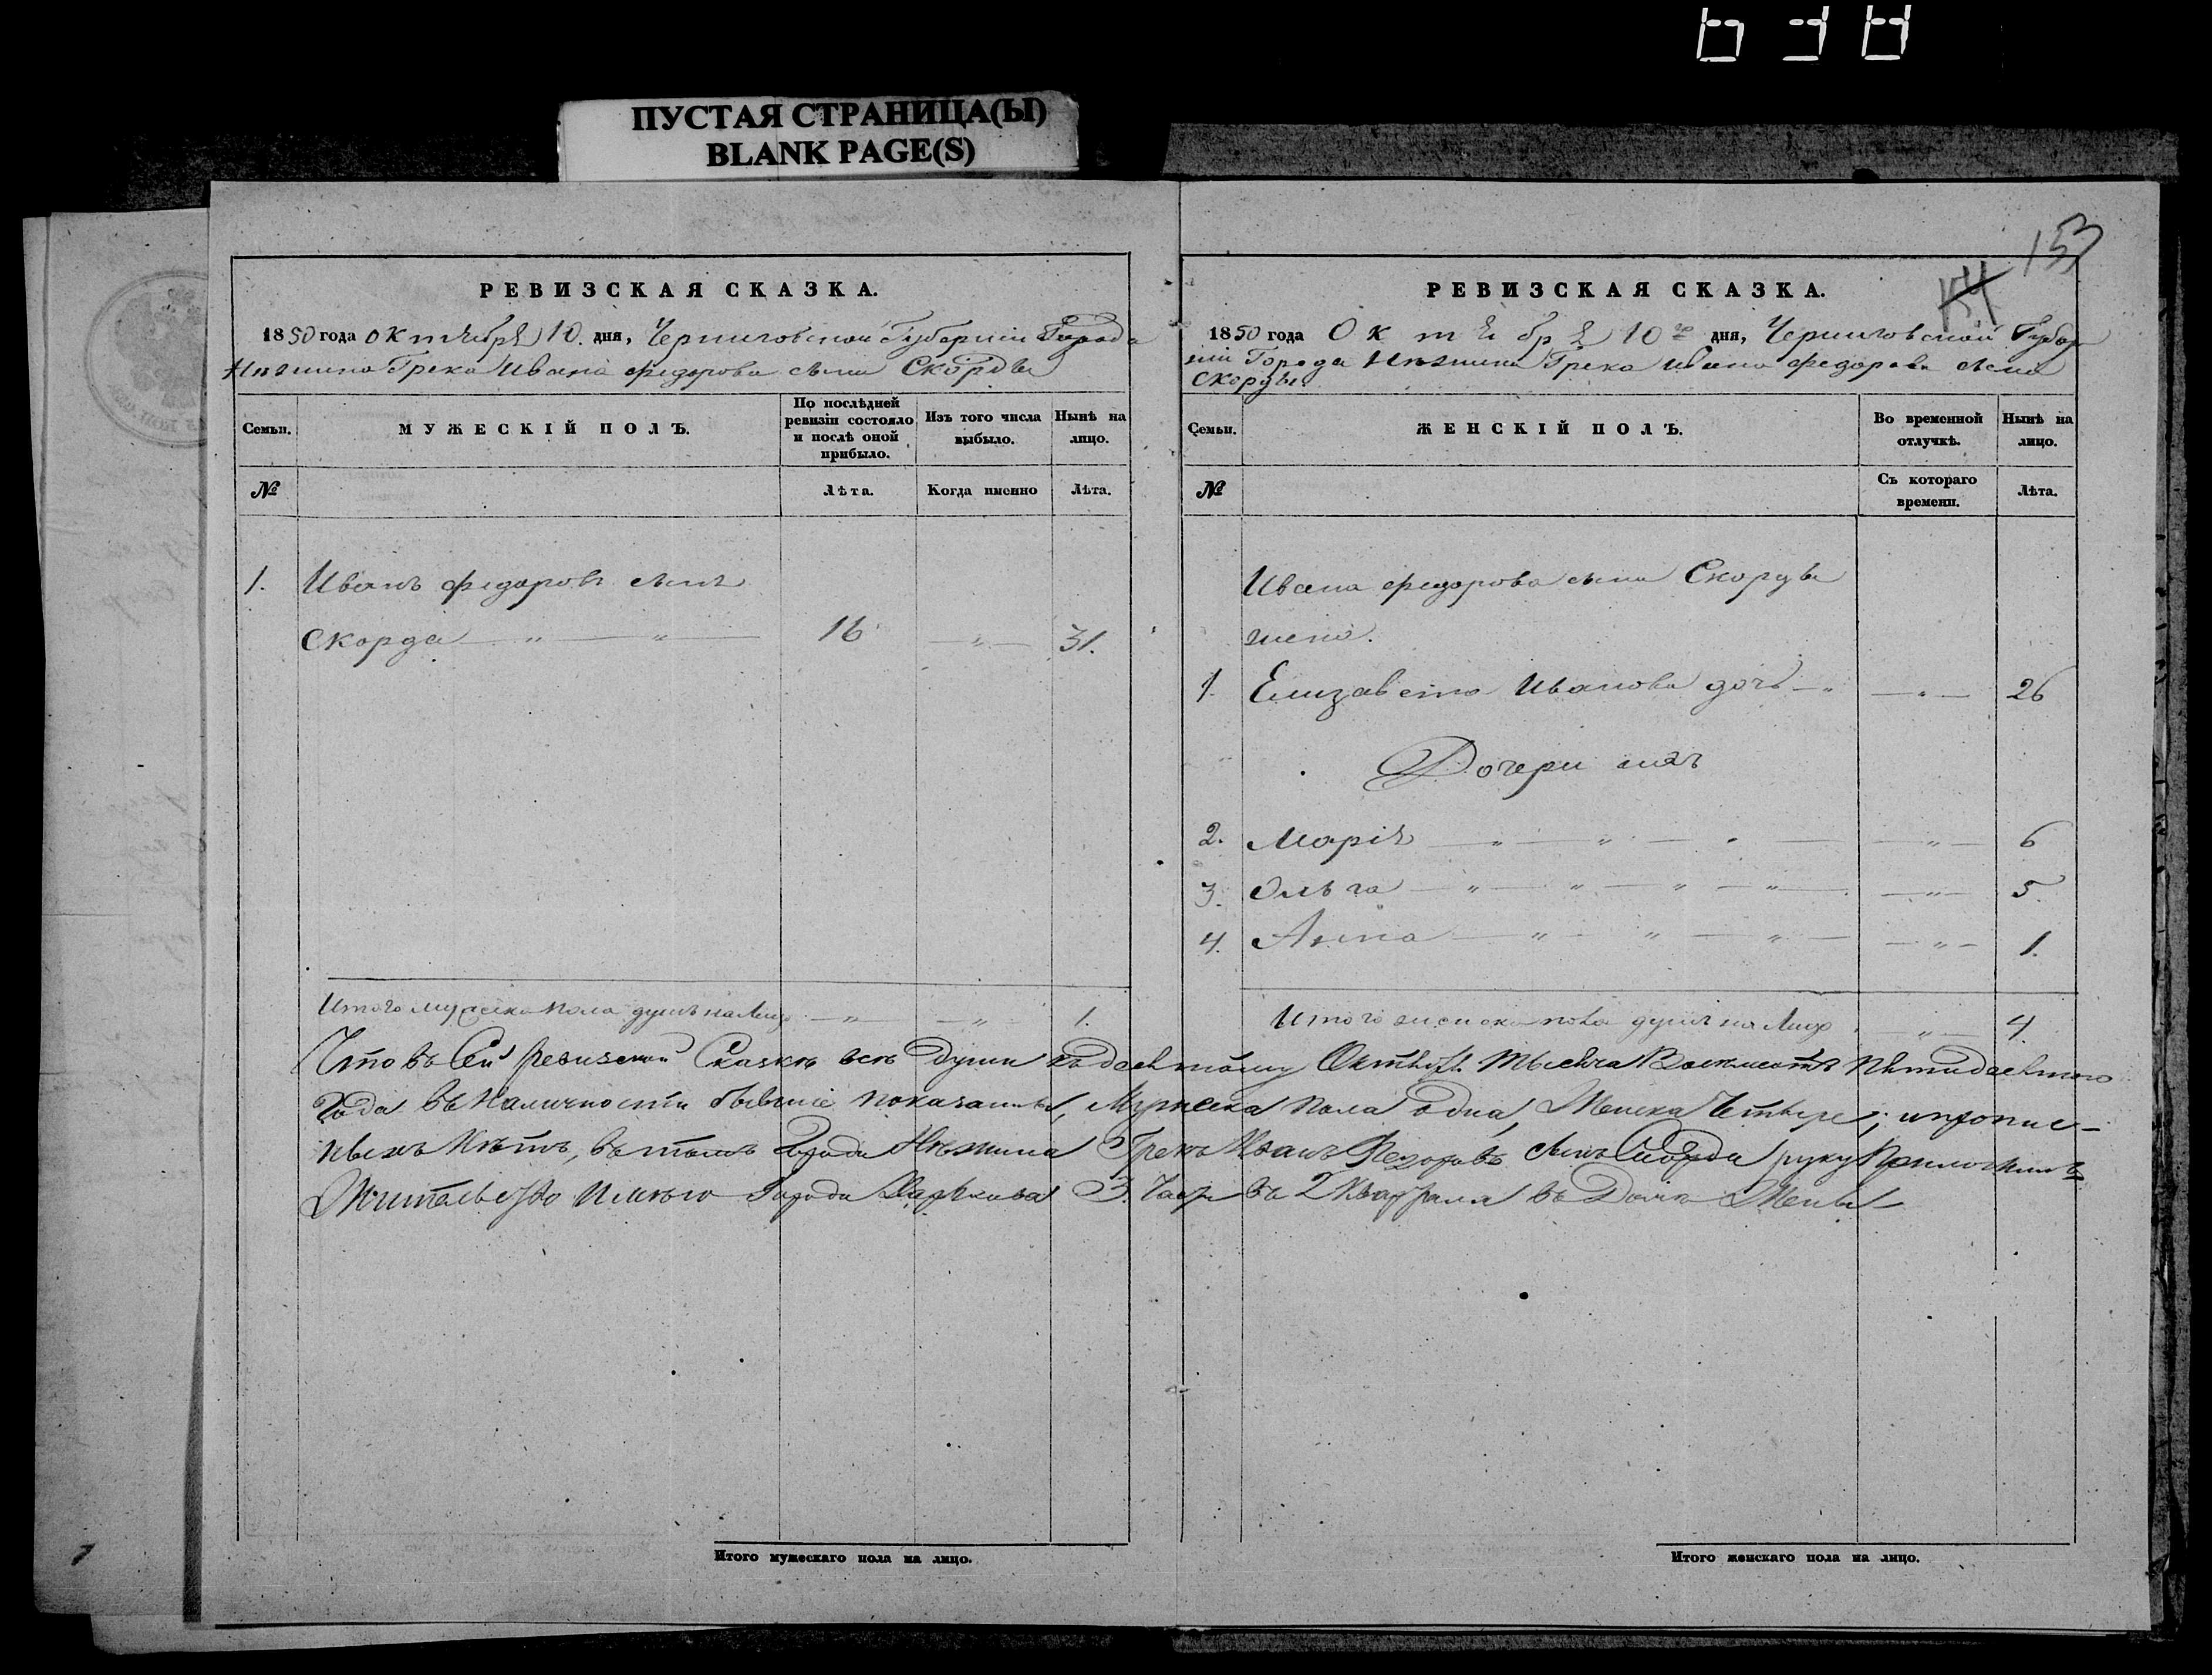 ПУСТАЯ СТРАНИЦА(Ы)
BLANK PAGE(S)
РЕВИЗСКАЯ СКАЗКА.
1850 года октября 10. дня, Черниговской Губерніи Города
Нѣжина Грека Ивана Федорова сына Скорды
Семьи.
МУЖЕСКІЙ ПОЛЪ.
По послѣдней ревизіи состояло и послѣ оной прибыло.
Изъ того числа выбыло.
Нынѣ на лицо.
№
Лѣта.
Когда именно
Лѣта.
1. Иванъ Федоровъ сынъ
Скорда — " — " — 16 — " — 31.
Итого мужеска пола душъ на Лицо — " — " — 1.
Итого мужескаго пола на лицо.
153
154
РЕВИЗСКАЯ СКАЗКА.
1850 года Октября 10го дня, Черниговской Губер
ніи Города Нѣжина Грека Ивана Федорова сына
Скорды
Семьи.
ЖЕНСКІЙ ПОЛЪ.
Во временной отлучкѣ.
Нынѣ на лицо.
№
Съ котораго времени.
Лѣта.
Ивана Федорова сына Скорды
жена.
1. Елизавета Иванова дочь — " — " — 26
Дочери ихъ
2. Марія — " — " — " — " — 6
3. Ольга — " — " — " — " — " — 5.
4. Анна — " — " — " — " — 1.
Итого женска пола душъ на Лицо — " — 4.
Что въ Сей ревизской Сказкѣ всѣ Души къ десятому Октября Тысяча Восемьсотъ Пятидесятого
Года въ Наличности бывшіе показанны, Мужеска пола одна, Женска Четыре; и пропис-
ныхъ Нѣтъ, въ томъ Города Нѣжина Грекъ Иванъ Федоровъ сынъ Скорда руку Приложилъ
Жительство Имѣю Города Харькова 3. Части въ 2 Квартала въ Домѣ Жены
Итого женскаго пола на лицо.